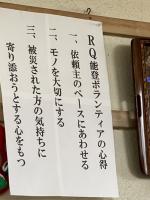 RQ能登ボランティアの心得
一、依頼主のペースにあわせる
二、モノを大切にする
三、被災された方の気持ちに
寄り添おうとする心をもつ